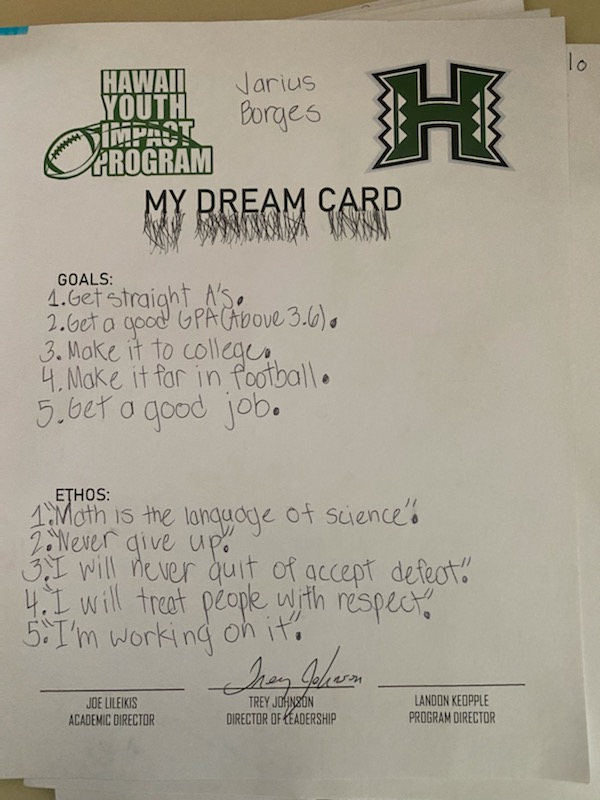 HAWAII
YOUTH
IMPACT
PROGRAM
Jarius
Borges
H
lo
MY DREAM CARD
GOALS:
1. Get straight A's.
2. Get a good GPA (Above 3.6).
3. Make it to college.
4. Make it far in football.
5. Get a good job.
ETHOS:
1. "Math is the language of science".
2. "Never give up".
3. "I will never quit of accept defeat".
4. "I will treat people with respect".
5. "I'm working on it".
Trey Johnson
JOE LILEIKIS
ACADEMIC DIRECTOR
TREY JOHNSON
DIRECTOR OF LEADERSHIP
LANDON KEOPPLE
PROGRAM DIRECTOR